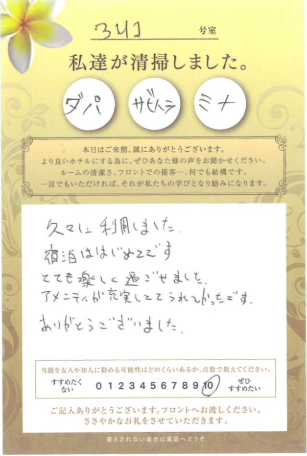 号室
私達が清掃しました。
ダパ サビトラ ミナ
本日はご来館、誠にありがとうございます。
より良いホテルにする為に、ぜひあなた様の声をお聞かせください。
ルームの清潔さ、フロントでの接客…、何でも結構です。
一言でもいただければ、それが私たちの学びとなり励みになります。
久々に利用しました。
宿泊ははじめてです
とても楽しく過ごせました。
アメニティが充実しててうれしかったです。
ありがとうございました。
当館を友人や知人に勧める可能性はどのくらいあるか、点数で教えてください。
すすめたくない 0 1 2 3 4 5 6 7 8 9 10 ぜひすすめたい
ご記入ありがとうございます。フロントへお渡しください。
ささやかなお礼をさせていただきます。
書ききれない場合は裏面へどうぞ